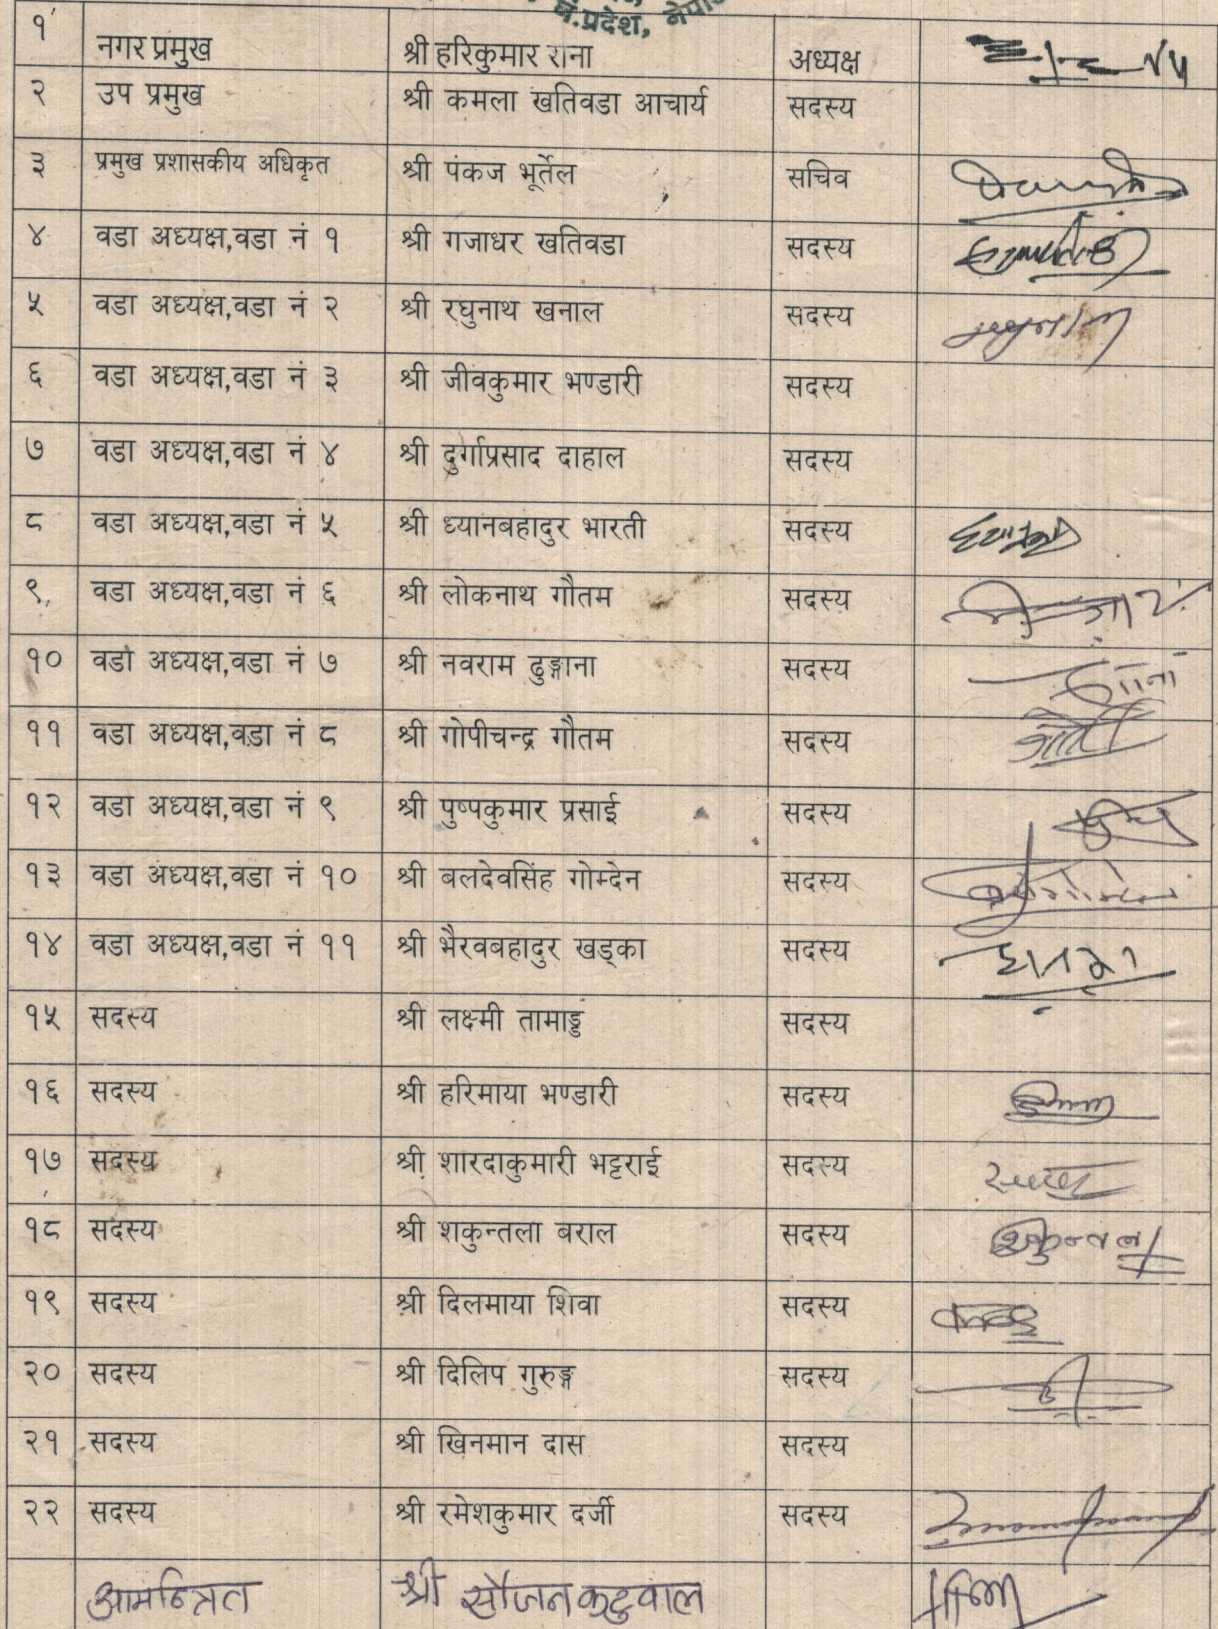 प्रदेश, नेपाल
१ नगर प्रमुख श्री हरिकुमार राना अध्यक्ष
२ उप प्रमुख श्री कमला खतिवडा आचार्य सदस्य
३ प्रमुख प्रशासकीय अधिकृत श्री पंकज भूर्तेल सचिव
४ वडा अध्यक्ष,वडा नं १ श्री गजाधर खतिवडा सदस्य
५ वडा अध्यक्ष,वडा नं २ श्री रघुनाथ खनाल सदस्य
६ वडा अध्यक्ष,वडा नं ३ श्री जीवकुमार भण्डारी सदस्य
७ वडा अध्यक्ष,वडा नं ४ श्री दुर्गाप्रसाद दाहाल सदस्य
८ वडा अध्यक्ष,वडा नं ५ श्री ध्यानबहादुर भारती सदस्य
९ वडा अध्यक्ष,वडा नं ६ श्री लोकनाथ गौतम सदस्य
१० वडा अध्यक्ष,वडा नं ७ श्री नवराम ढुङ्गाना सदस्य
११ वडा अध्यक्ष,वडा नं ८ श्री गोपीचन्द्र गौतम सदस्य
१२ वडा अध्यक्ष,वडा नं ९ श्री पुष्पकुमार प्रसाई सदस्य
१३ वडा अध्यक्ष,वडा नं १० श्री बलदेवसिंह गोम्देन सदस्य
१४ वडा अध्यक्ष,वडा नं ११ श्री भैरवबहादुर खड्का सदस्य
१५ सदस्य श्री लक्ष्मी तामाङ्ग सदस्य
१६ सदस्य श्री हरिमाया भण्डारी सदस्य
१७ सदस्य श्री शारदाकुमारी भट्टराई सदस्य
१८ सदस्य श्री शकुन्तला बराल सदस्य शकुन्तला
१९ सदस्य श्री दिलमाया शिवा सदस्य
२० सदस्य श्री दिलिप गुरुङ्ग सदस्य
२१ सदस्य श्री खिनमान दास सदस्य
२२ सदस्य श्री रमेशकुमार दर्जी सदस्य
आमन्त्रित श्री सौजन कटुवाल